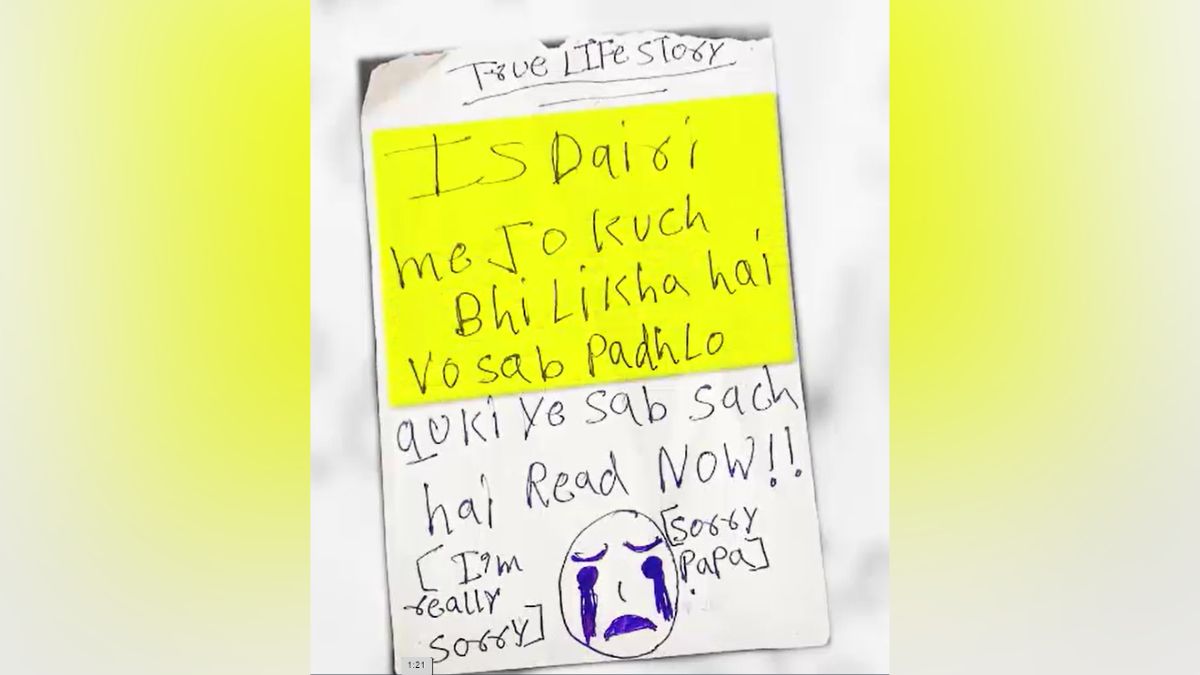 True LIFe story
Is Dairi
me Jo kuch
Bhi Likha hai
Vo sab PadhLo
quki ye sab sach
hai Read NOW!!
[I'm
really
sorry]
[Sorry
Papa]
1:21